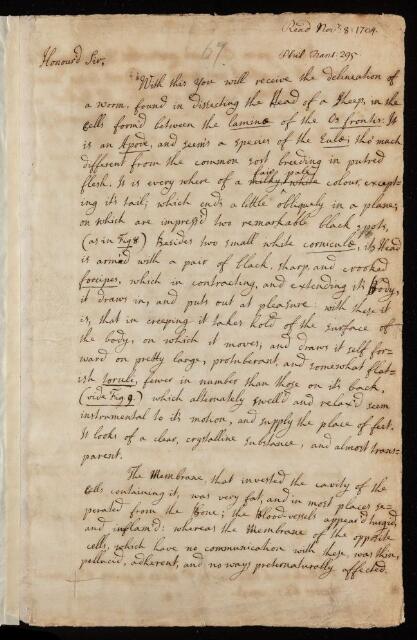 Read Nov.r 8: 1704.
67.
Phil Trans: 295
Honour'd Sir,
With this You will receive the delineation of
a worm, found in dissecting the Head of a Sheep, in the
Cells form'd between the laminæ of the Os frontis: It
is an Apode, and seems a Species of the Eulæ; tho' much
different from the common sort breeding in putred
flesh. It is every where of a milky white fair pale colour, except-
ing its tail; which ends a little obliquely in a plane;
on which are impress'd two remarkable black spots,
(as in Fig 8) Besides two small white corniculæ, its Head
is arm'd with a pair of black, sharp, and crooked
forcipes, which in contracting, and extending its Body,
it draws in, and puts out at pleasure: with these it
is, that in creeping it takes hold of the surface of
the body, on which it moves; and draws it self for-
ward on pretty large, protuberant, and somewhat flat-
ish toruli, fewer in number than those on its back,
(vide Fig 9.) which alternately swell'd and relax'd seem
instrumental to its motion, and supply the place of feet.
It looks of a clear, crystalline substance, and almost trans-
parent.
The Membrane that invested the cavity of the
Cells containing it, was very fat, and in most places se-
perated from the Bone; the Blood-vessels appear'd turgid,
and inflam'd: whereas the Membrane of the opposite
cells, which have no communication with these, was thin,
pellucid, adherent, and no ways preternaturally affected.